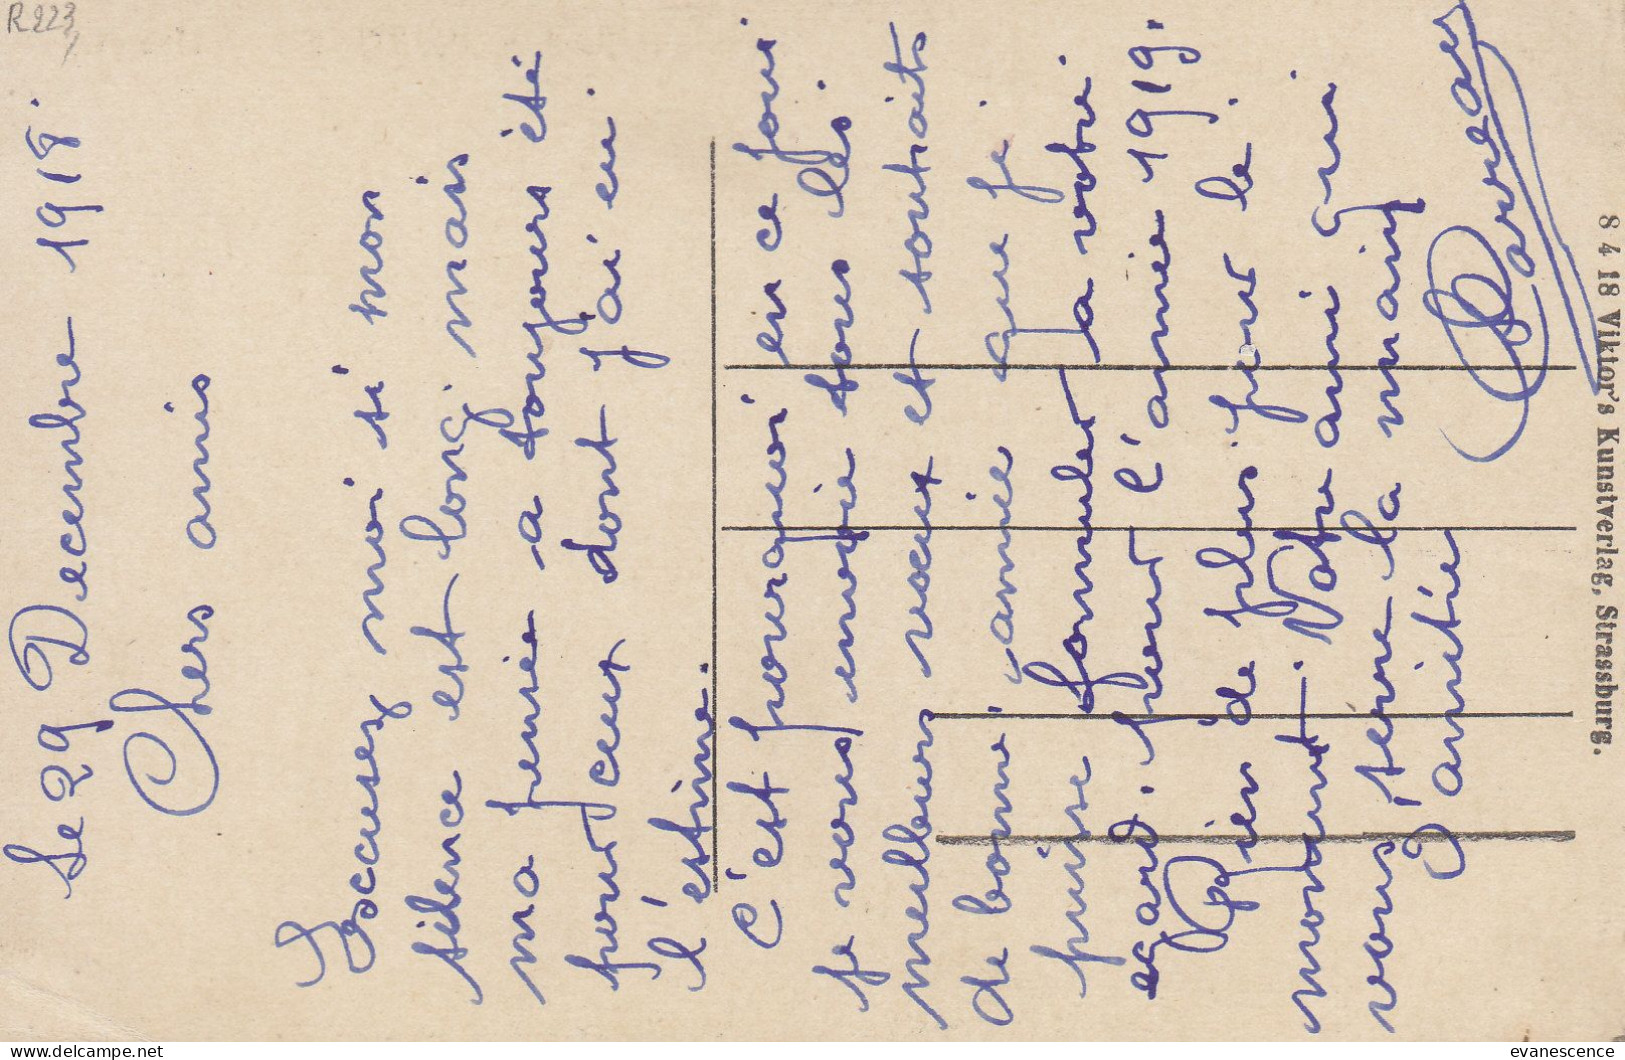 R223
Le 29 Decembre 1918.
Chers amis
Escusez moi si mon
silence est long, mais
ma pensé a toujours été
pour ceux dont j'ai eu
l'estime.
C'est pourquoi en ce jour
je vous envoie tous les
meilleurs voeux et souhaits
de bonne année que je
puisse formuler a votre
egard, pour l'année 1919.
Rien de plus pour le
moment. Votre ami qui
vous serre la main
d'amitié
8 4 18 Viktor's Kunstverlag, Strassburg.
delcampe.net
evanescence